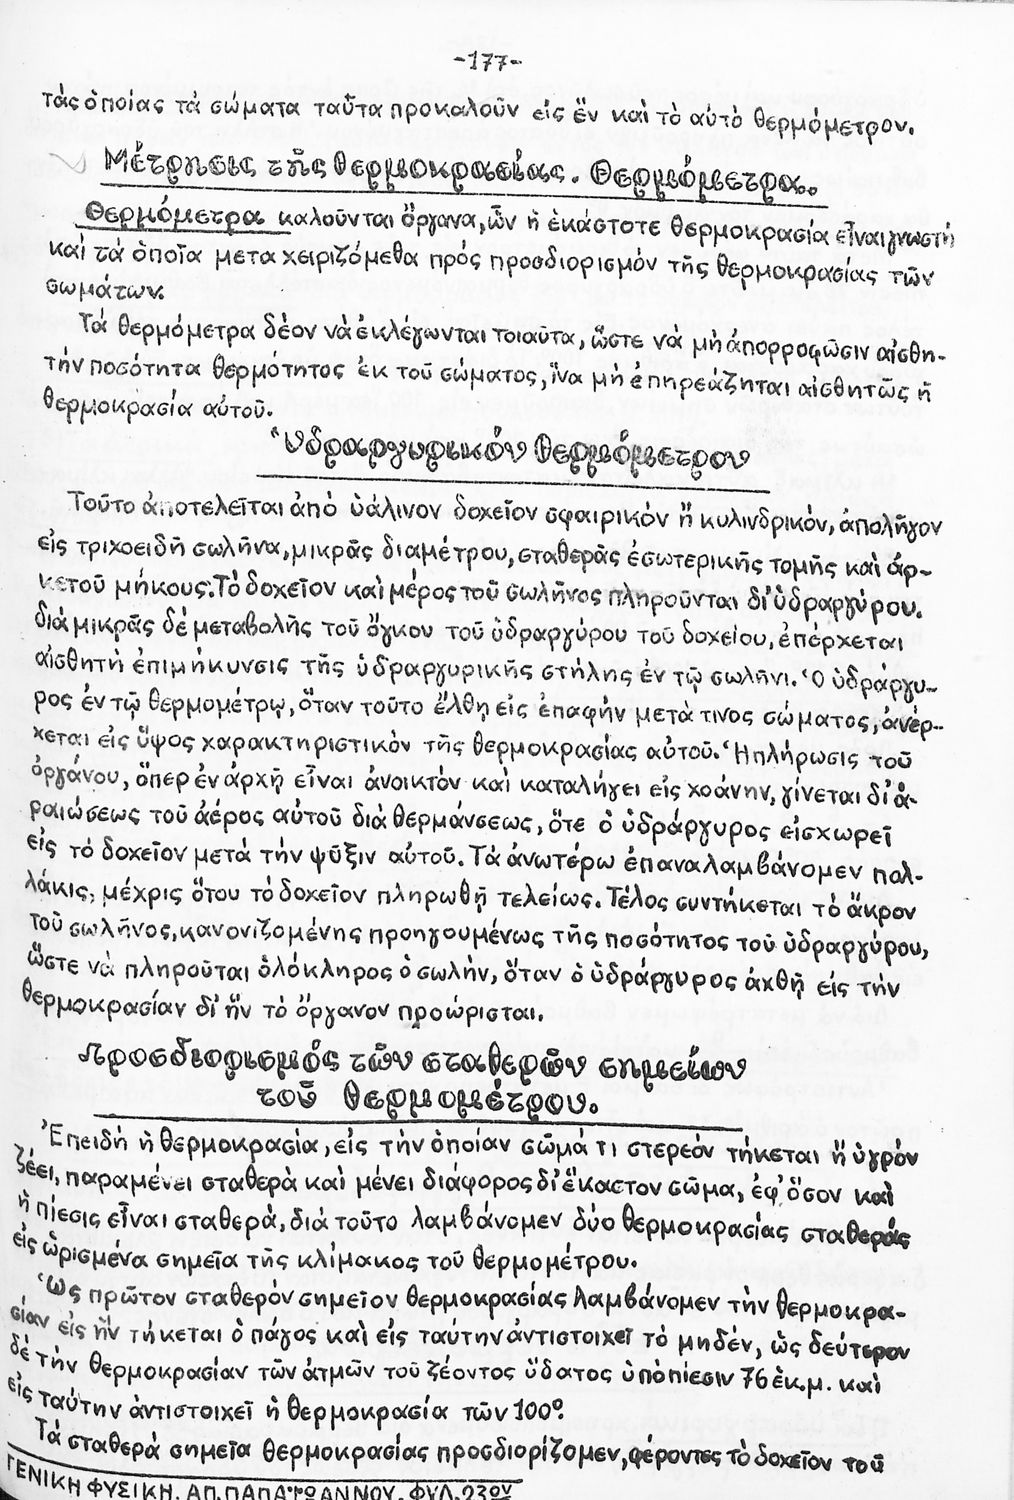 -177-
τὰς ὁποίας τὰ σώματα ταῦτα προκαλοῦν εἰς ἕν καὶ τὸ αὐτὸ θερμόμετρον.
Μέτρησις τῆς θερμοκρασίας. Θερμόμετρα..
Θερμόμετρα καλοῦνται ὄργανα, ὧν ἡ ἑκάστοτε θερμοκρασία εἶναι γνωστὴ
καὶ τὰ ὁποῖα μεταχειριζόμεθα πρός προσδιορισμόν τῆς θερμοκρασίας τῶν
σωμάτων.
Τά θερμόμετρα δέον νὰ ἐκλέγωνται τοιαῦτα, ὥστε νὰ μὴ ἀπορροφῶσιν αἰσθη-
τήν ποσότητα θερμότητος ἐκ τοῦ σώματος, ἵνα μὴ ἐπηρεάζηται αἰσθητῶς ἡ
θερμοκρασία αὐτοῦ.
Ὑδραργυρικόν θερμόμετρον
Τοῦτο ἀποτελεῖται ἀπό ὑάλινον δοχεῖον σφαιρικόν ἤ κυλινδρικόν, ἀπολῆγον
εἰς τριχοειδῆ σωλῆνα, μικρᾶς διαμέτρου, σταθερᾶς ἐσωτερικῆς τομῆς καὶ ἀρ-
κετοῦ μήκους. Τό δοχεῖον καὶ μέρος τοῦ σωλῆνος πληροῦνται δι' ὑδραργύρου.
διά μικρᾶς δέ μεταβολῆς τοῦ ὄγκου τοῦ ὑδραργύρου τοῦ δοχείου, ἐπέρχεται
αἰσθητή ἐπιμήκυνσις τῆς ὑδραργυρικῆς στήλης ἐν τῷ σωλῆνι. Ὁ ὑδράργυ-
ρος ἐν τῷ θερμομέτρῳ, ὅταν τοῦτο ἔλθῃ εἰς ἐπαφήν μετά τινος σώματος, ἀνέρ-
χεται εἰς ὕψος χαρακτηριστικόν τῆς θερμοκρασίας αὐτοῦ. Ἡ πλήρωσις τοῦ
ὀργάνου, ὅπερ ἐν ἀρχῇ εἶναι ἀνοικτόν καὶ καταλήγει εἰς χοάνην, γίνεται δι' ἀ-
ραιώσεως τοῦ ἀέρος αὐτοῦ διά θερμάνσεως, ὅτε ὁ ὑδράργυρος εἰσχωρεῖ
εἰς τό δοχεῖον μετά τήν ψῦξιν αὐτοῦ. Τά ἀνωτέρω ἐπαναλαμβάνομεν πολ-
λάκις, μέχρις ὅτου τό δοχεῖον πληρωθῇ τελείως. Τέλος συντήκεται τό ἄκρον
τοῦ σωλῆνος, κανονιζομένης προηγουμένως τῆς ποσότητος τοῦ ὑδραργύρου,
ὥστε νὰ πληροῦται ὁλόκληρος ὁ σωλήν, ὅταν ὁ ὑδράργυρος ἀχθῇ εἰς τήν
θερμοκρασίαν δι' ἥν τό ὄργανον προώρισται.
Προσδιορισμός τῶν σταθερῶν σημείων
τοῦ θερμομέτρου.
Ἐπειδή ἡ θερμοκρασία, εἰς τήν ὁποίαν σῶμά τι στερεόν τήκεται ἤ ὑγρόν
ζέει, παραμένει σταθερά καὶ μένει διάφορος δι' ἕκαστον σῶμα, ἐφ' ὅσον καὶ
ἡ πίεσις εἶναι σταθερά, διά τοῦτο λαμβάνομεν δύο θερμοκρασίας σταθεράς
εἰς ὡρισμένα σημεῖα τῆς κλίμακος τοῦ θερμομέτρου.
Ὡς πρῶτον σταθερόν σημεῖον θερμοκρασίας λαμβάνομεν τήν θερμοκρα-
σίαν εἰς ἥν τήκεται ὁ πάγος καὶ εἰς ταύτην ἀντιστοιχεῖ τό μηδέν, ὡς δεύτερον
δέ τήν θερμοκρασίαν τῶν ἀτμῶν τοῦ ζέοντος ὕδατος ὑπό πίεσιν 76 ἑκ.μ. καὶ
εἰς ταύτην ἀντιστοιχεῖ ἡ θερμοκρασία τῶν 100°.
Τά σταθερά σημεῖα θερμοκρασίας προσδιορίζομεν, φέροντες τό δοχεῖον τοῦ
ΓΕΝΙΚΗ ΦΥΣΙΚΗ. ΑΠ. ΠΑΠΑΪΩΑΝΝΟΥ. ΦΥΛ. 23ον